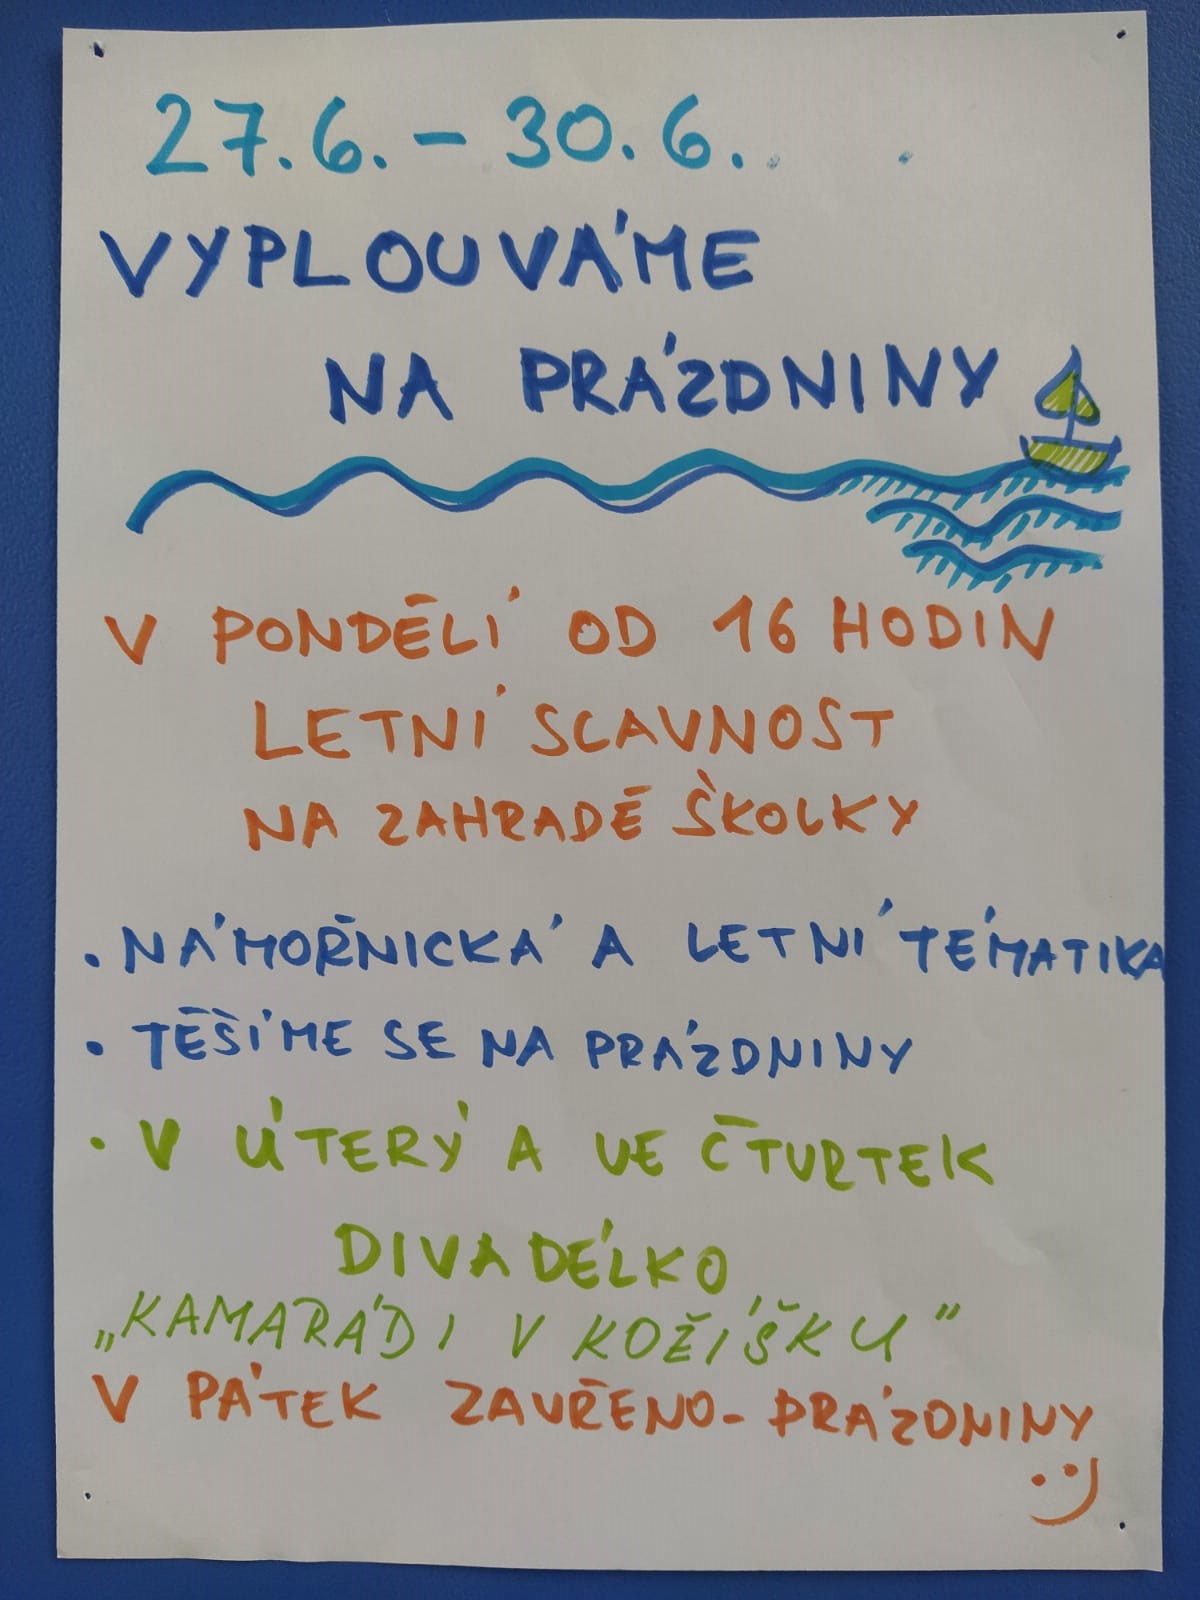 27.6. - 30.6.
VYPLOUVÁME
NA PRÁZDNINY
V PONDĚLÍ OD 16 HODIN
LETNÍ SLAVNOST
NA ZAHRADĚ ŠKOLKY
• NÁMOŘNICKÁ A LETNÍ TÉMATIKA
• TĚŠÍME SE NA PRÁZDNINY
• V ÚTERÝ A VE ČTVRTEK
DIVADÉLKO
„KAMARÁDI V KOŽÍŠKU"
V PÁTEK ZAVŘENO - PRÁZDNINY